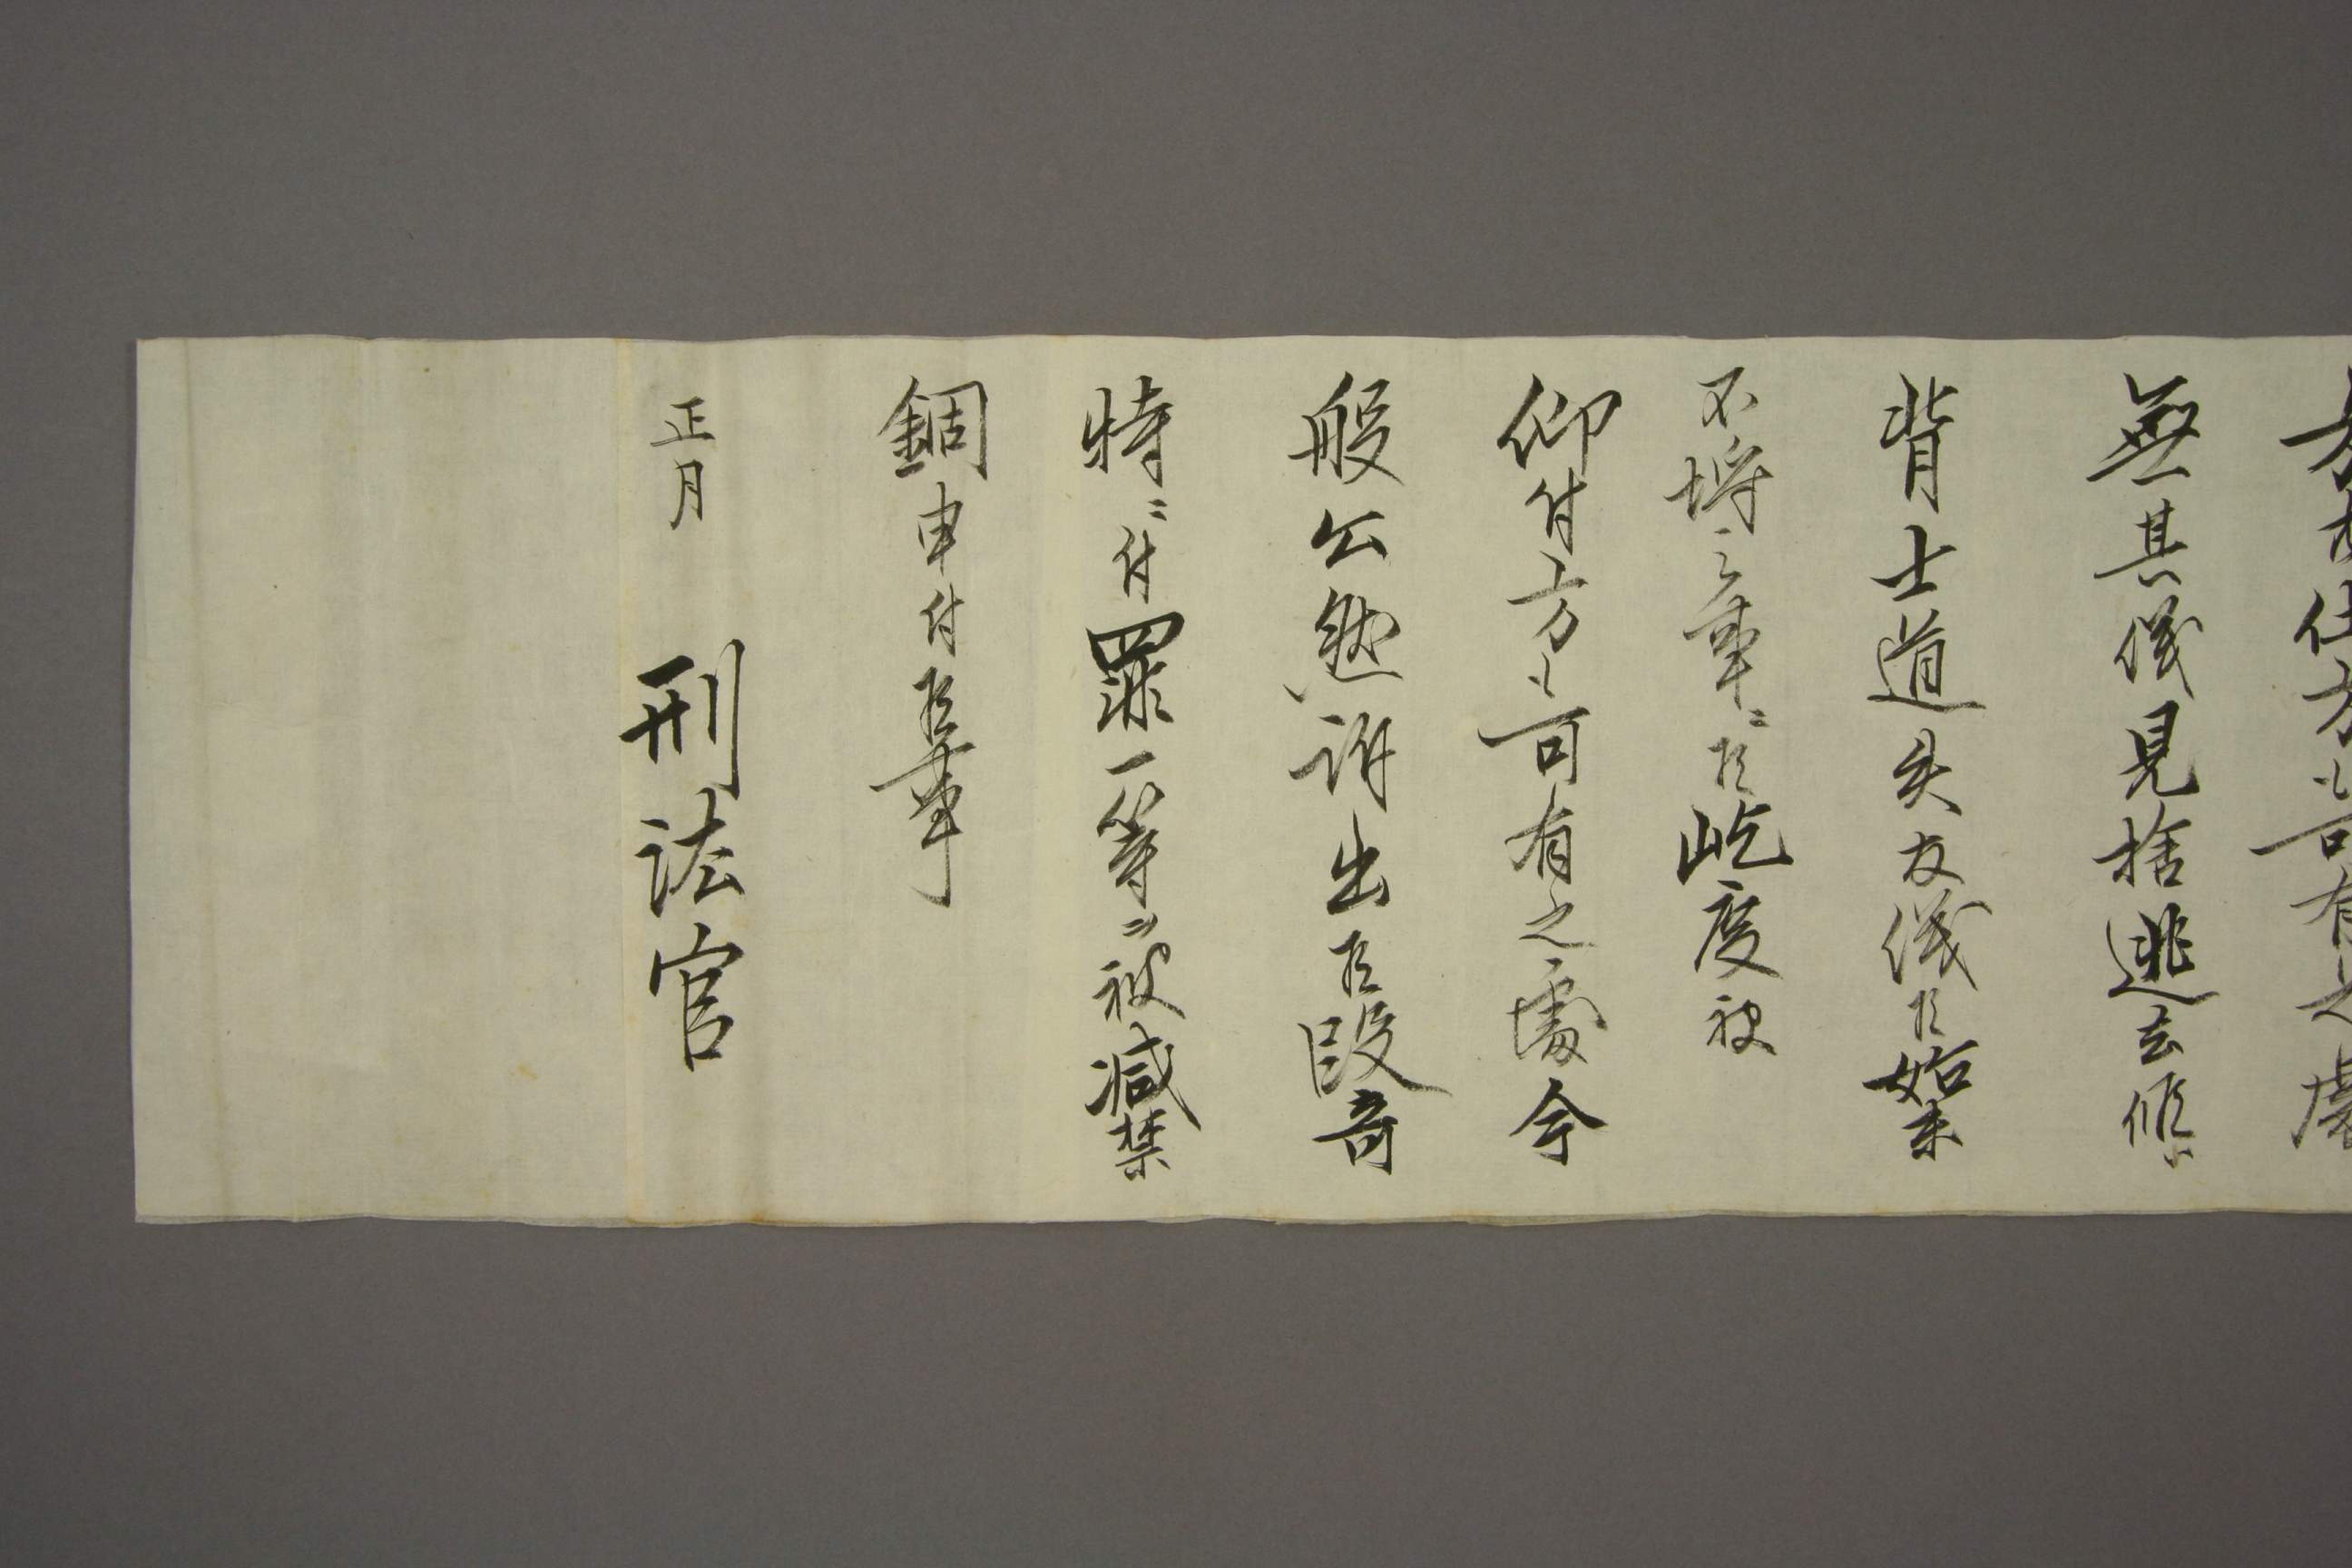 方も仕方も可有之處
無其儀見捨逃去候ハ
背士道失友儀候始末
不埒之事ニ候屹度被
仰付方も可有之處今
般公然訴出候段奇
特ニ付罪一等ヲ被減禁
錮申付候事
正月 刑法官